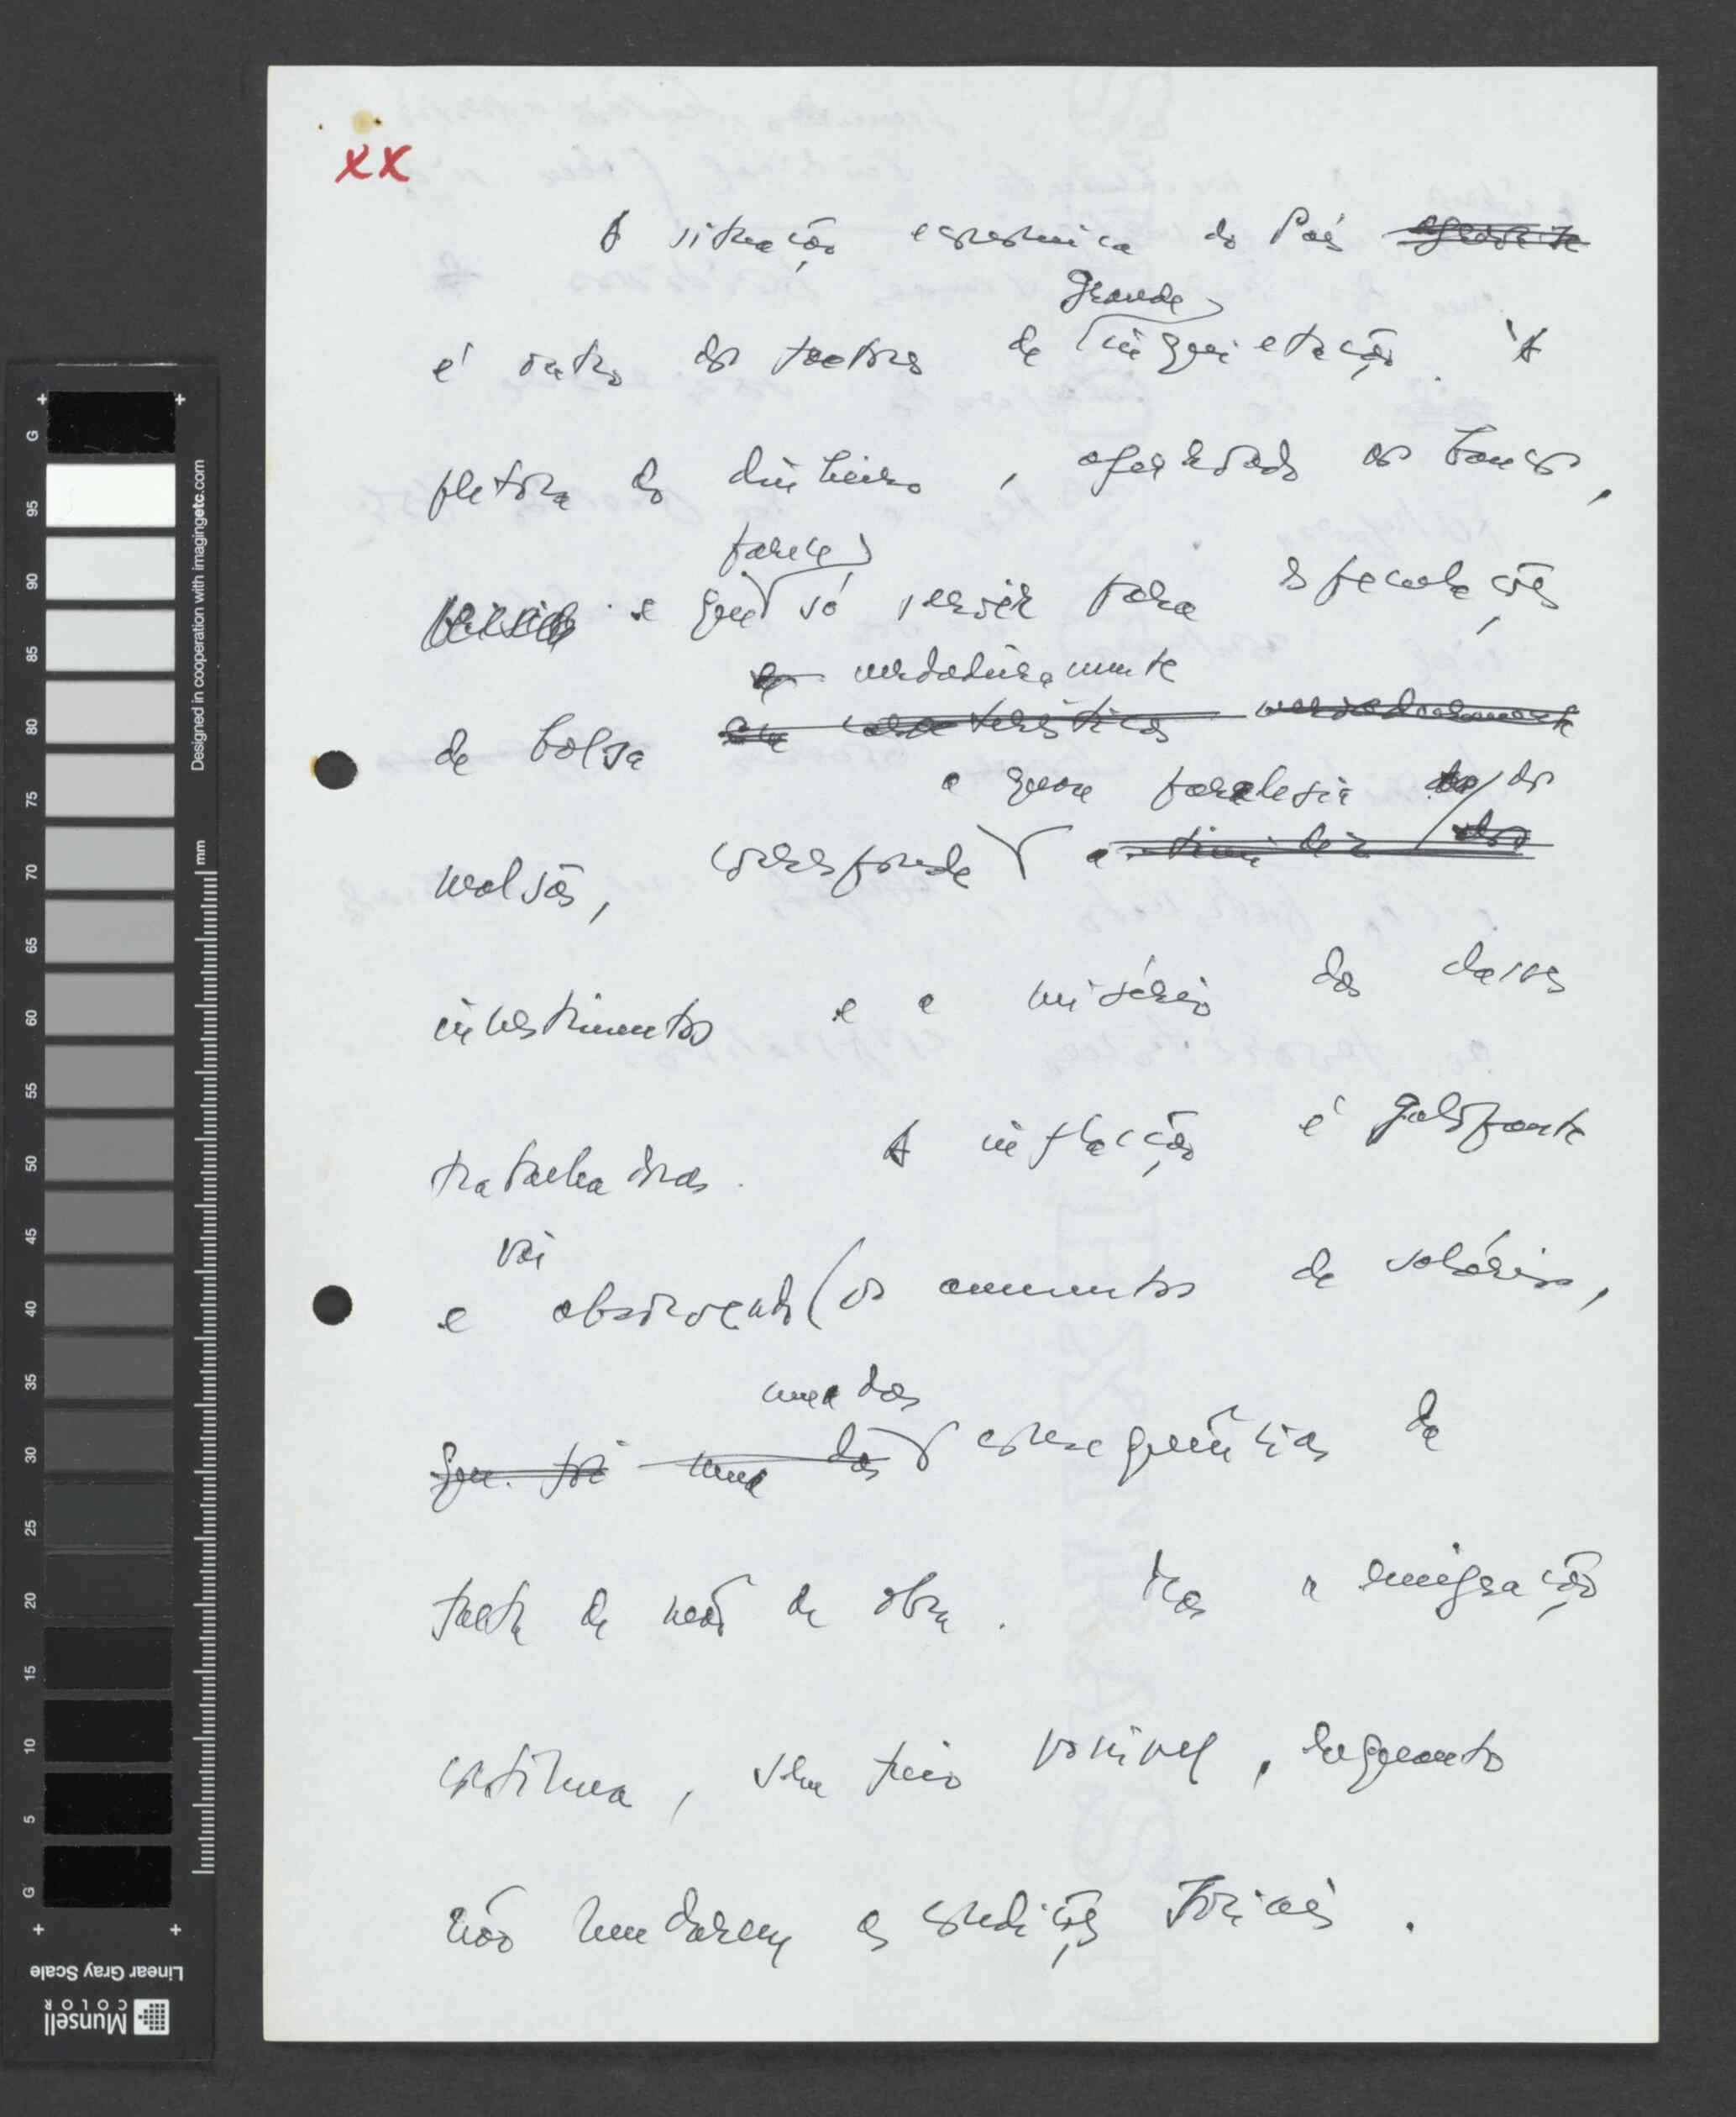 XX
A situação económica do País
grande
é outro dos factores de inquietação. À
pletora do dinheiro, afogando os bancos,
parece
e que só servir para especulações
verdadeiramente
de bolsa
a quase paralesia dos
malsãs, corresponde
investimentos e a miséria das classes
trabalhadoras. A inflacção é galopante
vai
e absorvendo os aumentos de salários,
uma das
que foi uma das consequências da
falta de mão de obra. Mas a emigração
continua, sem freio possível, enquanto
não mudarem as condições sociais.
G 95 90 85 80 75 70 65 60 55 50 45 40 35 30 25 20 15 10 5 G
mm
Designed in cooperation with imagingetc.com
Linear Gray Scale
Munsell
COLOR